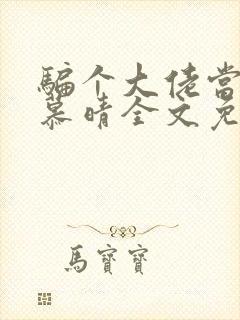 骗个大佬当
慕晴全文免
馬寶寶